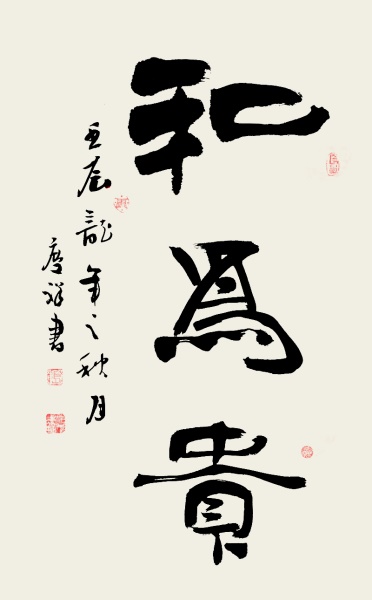 和為貴
壬辰龍年之秋月
祥書